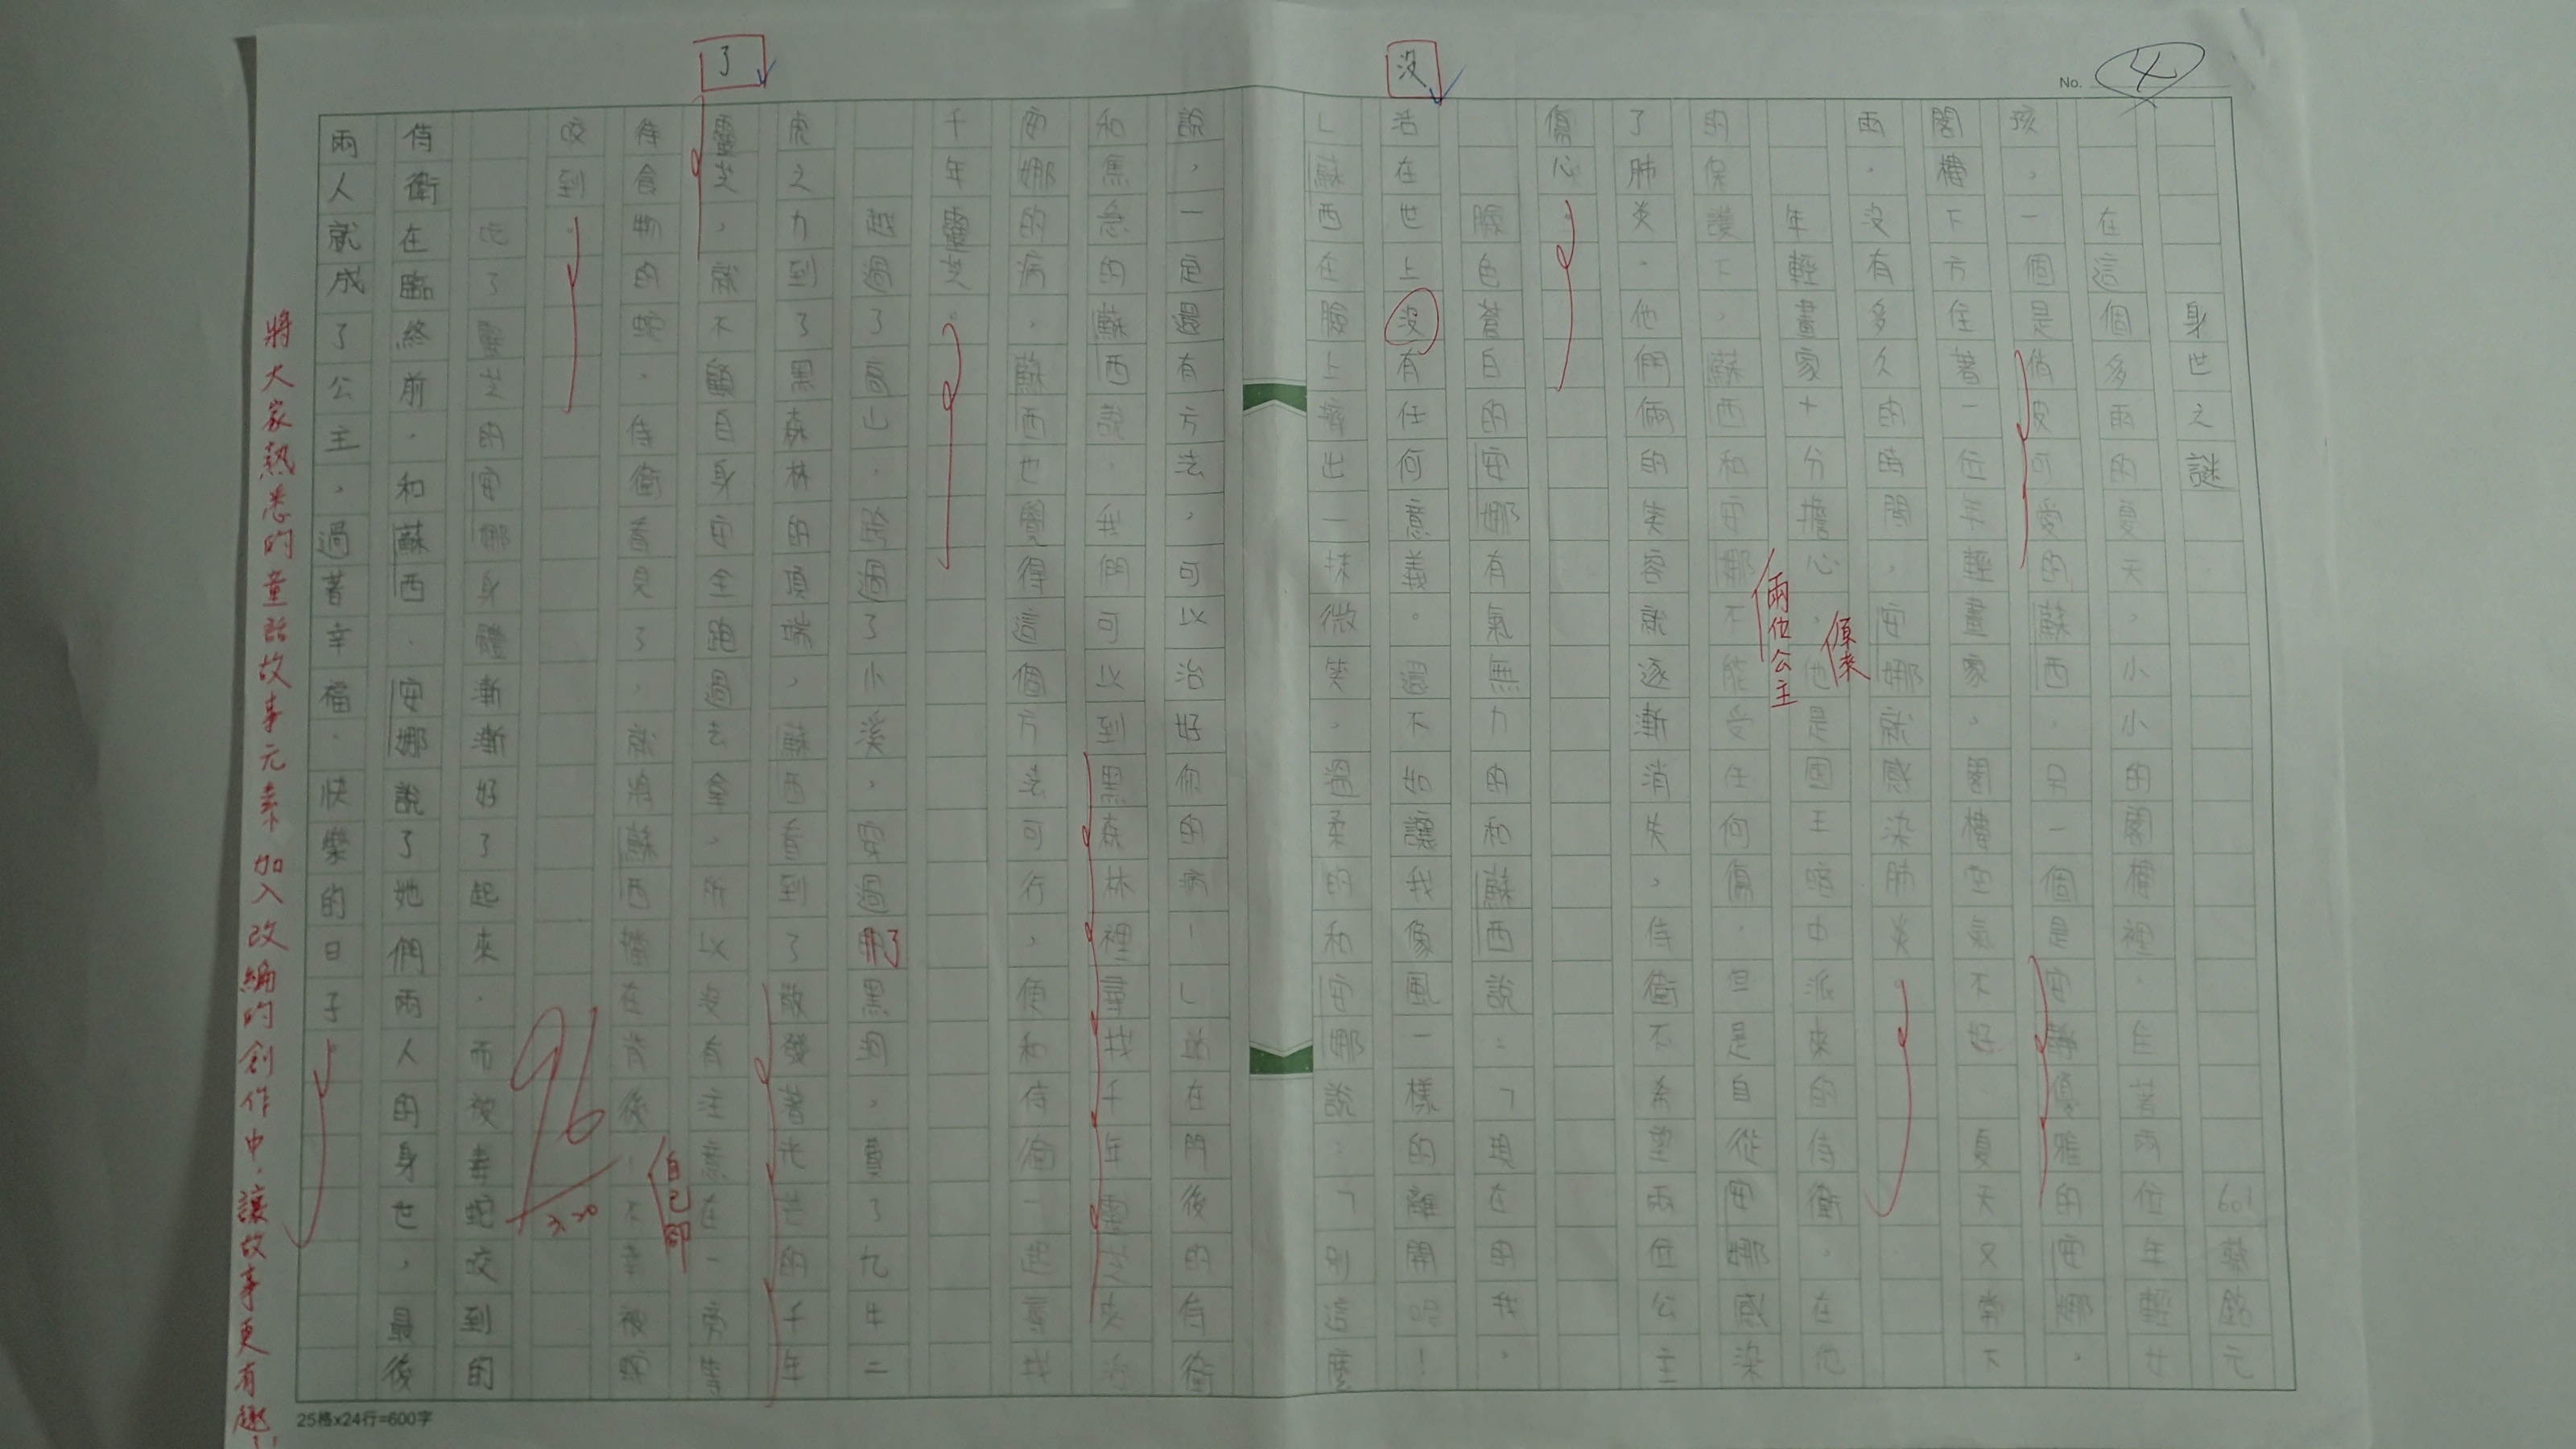 No. 4
身世之謎
601 蘇銘元
在這個多雨的夏天,小小的閣樓裡.住著兩位年輕女
孩,一個是俏皮可愛的蘇西.另一個是安靜優雅的安娜,
閣樓下方住著一位年輕畫家,閣樓空氣不好.夏天又常下
雨.沒有多久的時間,安娜就感染肺炎。
年輕畫家十分擔心,他原來是國王暗中派來的侍衛,在他
的保護下,蘇西和安娜兩位公主不能受任何傷.但是自從安娜感染
了肺炎.他們倆的笑容就逐漸消失,侍衛不希望兩位公主
傷心。
臉色蒼白的安娜有氣無力的和蘇西說:「現在的我,
活在世上沒有任何意義。還不如讓我像風一樣的離開吧!
」蘇西在臉上擠出一抹微笑,溫柔的和安娜說:「別這麼
說,一定還有方法,可以治好你的病!」站在門後的侍衛
和焦急的蘇西說.我們可以到黑森林裡尋找千年靈芝來治
安娜的病,蘇西也覺得這個方法可行,便和侍衛一起尋找
千年靈芝。
越過了高山.跨過了小溪,穿過了黑洞,費了九牛二
虎之力到了黑森林的頂端,蘇西看到了散發著光芒的千年
靈芝,就不顧自身安全跑過去拿,所以沒有注意在一旁等
待食物的蛇.侍衛看見了,就將蘇西擋在背後!自己卻不幸被蛇
咬到。
吃了靈芝的安娜身體漸漸好了起來.而被毒蛇咬到的
侍衛在臨終前.和蘇西.安娜說了她們兩人的身世,最後
兩人就成了公主,過著幸福.快樂的日子。
沒
了
96
將大家熟悉的童話故事元素加入改編的創作中,讓故事更有趣!
25格x24行=600字